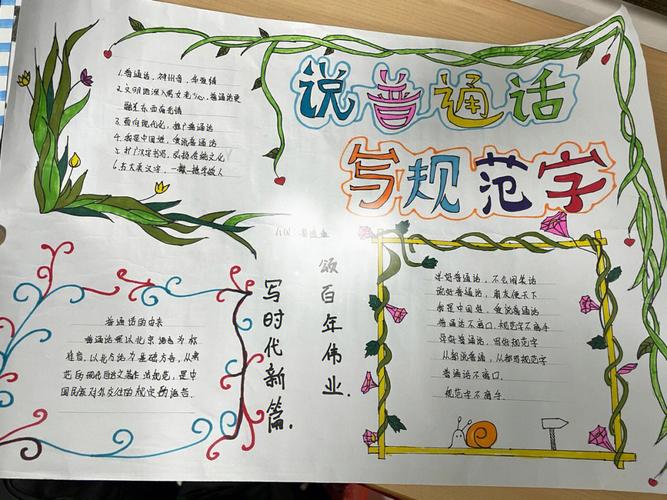 说普通话
写规范字
1.普通话,神州音,华夏情
2.文明地深入男女老少心,普通话更
融了东西南北情
3.面向现代化,推广普通话
4.我是中国娃,爱说普通话
5.推广汉字书写,弘扬传统文化
6.方大美汉字,一撇一捺学做人
颂百年伟业.
写时代新篇.
普通话的由来
普通话是以北京语音为标
准音,以北方话为基础方言,以典
范的现代白话文著作为规范,是中
国民族对外交往的规定的语言.
学好普通话,不会闹笑话
说好普通话,朋友遍天下
我是中国娃,爱说普通话
普通话不离口,规范字不离手
学好普通话,写好规范字
人人都说普通话,人人都写规范字
普通话不离口.
规范字不离手.